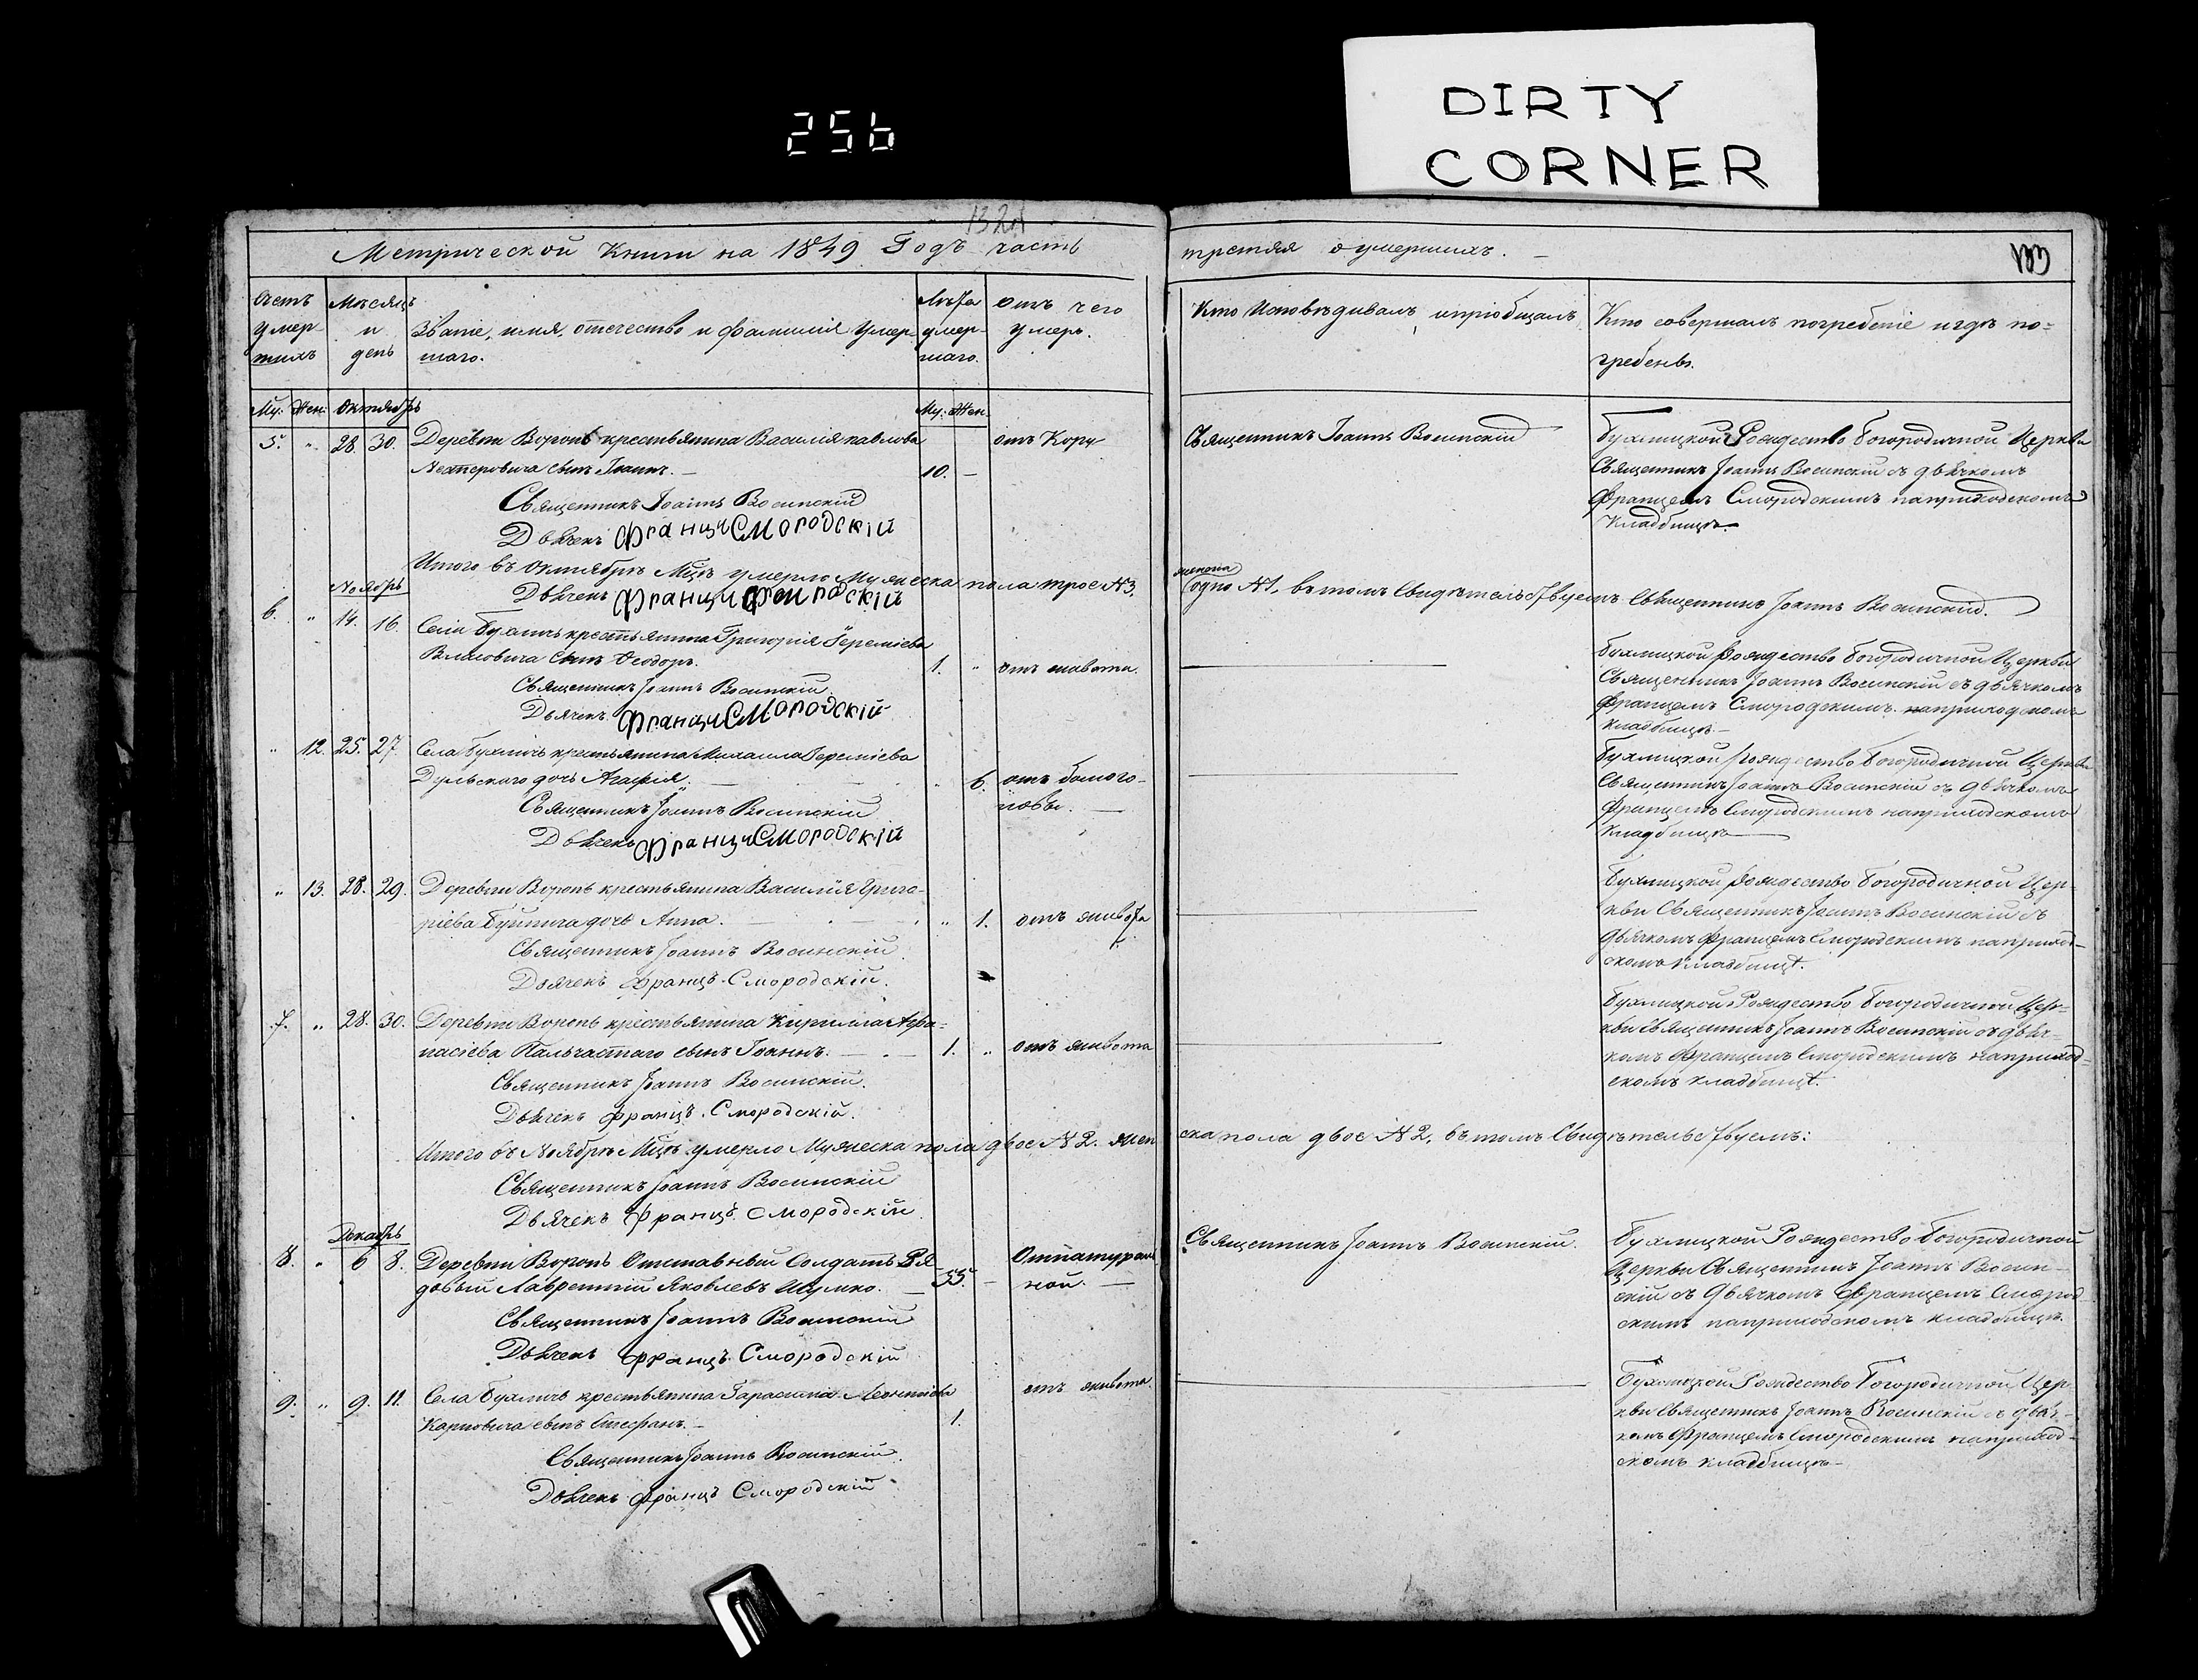 256
DIRTY
CORNER
132А
133
Метрической Книги на 1849 Годъ часть
третяя о умершихъ.
Счетъ умершихъ
Мѣсяцъ и день
Званіе, имя, отечество и фамилія умершаго.
Лѣта умершаго.
отъ чего умеръ.
Кто Исповѣдивалъ и пріобщалъ
Кто совершалъ погребеніе и гдѣ погребенъ.
Му. Жен. Октябрь Му: Жен.
5. " 28. 30. Деревни Воронь крестьянина Василія Павлова отъ Кору
Нестеровича сынъ Іоаннъ. — 10. —
Священникъ Іоаннъ Восинскій
Дьячекъ Францъ Смородскій
Священникъ Іоаннъ Восинскій
Бухлицкой Рождество Богородичной Церкви
Священникъ Іоаннъ Восинскій съ дьячкомъ
Францемъ Смородскимъ на приходскомъ
кладбищѣ.
Итого въ Октябрѣ Мцѣ умерло Мужеска пола трое №3, женска одно №1, въ томъ Свидѣтельствуемъ Священникъ Іоаннъ Восинскій.
Дьячекъ Францъ Смородскій
Ноябрь
6. " 14. 16. Села Бухличь крестьянина Григорія Іереміева
сынъ Ѳеодоръ. 1. " отъ живота.
Священникъ Іоаннъ Восинскій
Дьячекъ Францъ Смородскій
Бухлицкой Рождество Богородичной Церкви
Священникъ Іоаннъ Восинскій съ дьячкомъ
Францемъ Смородскимъ на приходскомъ
кладбищѣ. —
" 12. 25. 27. Села Бухличь крестьянина Михаила Іереміева
Дульского дочь Агафія. " 6. отъ
Священникъ Іоаннъ Восинскій
Дьячекъ Францъ Смородскій
Бухлицкой Рождество Богородичной Церкви
Священникъ Іоаннъ Восинскій съ дьячкомъ
Францемъ Смородскимъ на приходскомъ
кладбищѣ
" 13. 28. 29. Деревни Воронь крестьянина Василія Григо-
ріева дочь Анна. " 1. отъ живота
Священникъ Іоаннъ Восинскій
Дьячекъ Францъ Смородскій.
Бухлицкой Рождество Богородичной Цер-
кви Священникъ Іоаннъ Восинскій съ
дьячкомъ Францемъ Смородскимъ на приход-
скомъ кладбищѣ.
7. " 28. 30. Деревни Воронь крестьянина Кирилла Афа-
насіева Пальчастаго сынъ Іоаннъ. 1. " отъ живота
Священникъ Іоаннъ Восинскій.
Дьячекъ Францъ Смородскій.
Бухлицкой Рождество Богородичной Цер-
кви Священникъ Іоаннъ Восинскій съ дьяч-
комъ Францемъ Смородскимъ на приход-
скомъ кладбищѣ.
Итого въ Ноябрѣ Мцѣ умерло Мужеска пола двое №2. женска пола двое №2, въ томъ Свидѣтельствуемъ:
Священникъ Іоаннъ Восинскій
Дьячекъ Францъ Смородскій
Декабрь
8. " 6 8. Деревни Воронь Отставный Солдатъ Ря-
довый Лаврентій Яковлевъ Шумко. 55. — Отъ натураль
ной. —
Священникъ Іоаннъ Восинскій
Дьячекъ Францъ Смородскій
Священникъ Іоаннъ Восинскій.
Бухлицкой Рождество Богородичной
Церкви Священникъ Іоаннъ Восин-
скій съ дьячкомъ Францемъ Смород
скимъ на приходскомъ кладбищѣ.
9. " 9. 11. Села Бухличь крестьянина Гарасима Леонтіева отъ живота.
Карповича сынъ Стефанъ. — 1.
Священникъ Іоаннъ Восинскій.
Дьячекъ Францъ Смородскій
Бухлицкой Рождество Богородичной Цер
кви Священникъ Іоаннъ Восинскій съ дьяч-
комъ Францемъ Смородскимъ на приход-
скомъ кладбищѣ